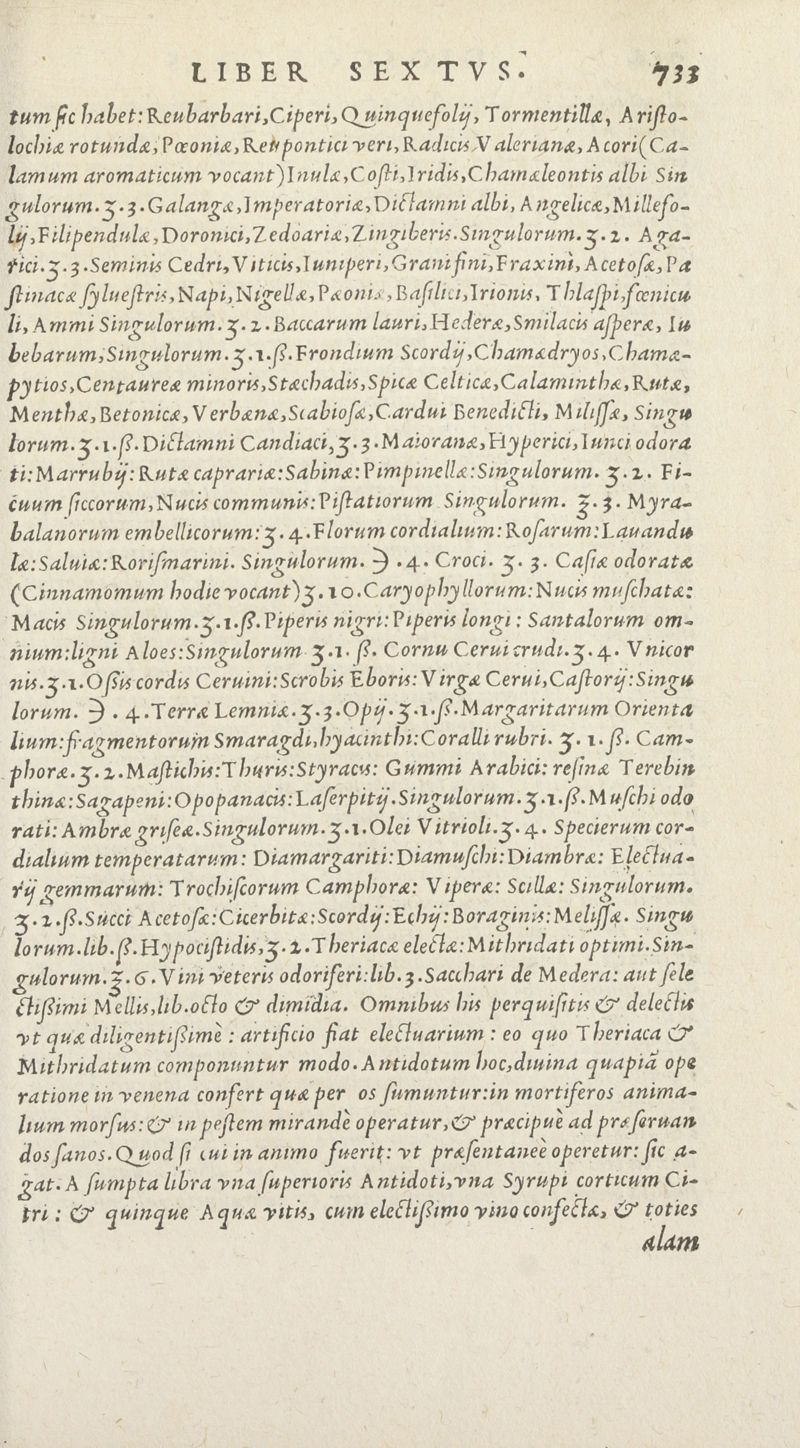 LIBER SEXTVS. 733
tum sic habet: Reubarbari, Ciperi, Quinquefolij, Tormentillæ, Aristo-
lochiæ rotundæ, Pœoniæ, Reupontici veri, Radicis Valerianæ, Acori (Ca-
lamum aromaticum vocant) Inulæ, Costi, Iridis, Chamæleontis albi Sin
gulorum. ʒ. 3. Galangæ, Imperatoriæ, Dictamni albi, Angelicæ, Millefo-
lij, Filipendulæ, Doronici, Zedoariæ, Zingiberis. Singulorum. ʒ. 2. Aga-
rici. ʒ. 3. Seminis Cedri, Viticis, Iuniperi, Granifini, Fraxini, Acetosæ, Pa
stinacæ syluestris, Napi, Nigellæ, Pæoniæ, Basilici, Irionis, Thlaspi, fœnicu
li, Ammi Singulorum. ʒ. 2. Baccarum lauri, Hederæ, Smilacis asperæ, Iu
bebarum, Singulorum. ʒ. 1. ß. Frondium Scordij, Chamædryos, Chamæ-
pytios, Centaureæ minoris, Stæchadis, Spicæ Celticæ, Calaminthæ, Rutæ,
Menthæ, Betonicæ, Verbænæ, Scabiosæ, Cardui Benedicti, Milissæ, Singu
lorum. ʒ. 1. ß. Dictamni Candiaci, ʒ. 3. Maioranæ, Hyperici, Iunci odora
ti: Marrubij: Rutæ caprariæ: Sabinæ: Pimpinellæ: Singulorum. ʒ. 2. Fi-
cuum siccorum, Nucis communis: Pistatiorum Singulorum. ℥. 3. Myra-
balanorum embellicorum: ʒ. 4. Florum cordialium: Rosarum: Lauandu
læ: Saluiæ: Rorismarini. Singulorum. ℈. 4. Croci. ʒ. 3. Casiæ odoratæ
(Cinnamomum hodie vocant) ʒ. 10. Caryophyllorum: Nucis muschatæ:
Macis Singulorum. ʒ. 1. ß. Piperis nigri: Piperis longi: Santalorum om-
nium: ligni Aloes: Singulorum ʒ. 1. ß. Cornu Cerui crudi. ʒ. 4. Vnicor
nis. ʒ. 1. Ossis cordis Ceruini: Scrobis Eboris: Virgæ Cerui, Castorij: Singu
lorum. ℈. 4. Terræ Lemniæ. ʒ. 3. Opij. ʒ. 1. ß. Margaritarum Orienta
lium: fragmentorum Smaragdi, hyacinthi: Coralli rubri. ʒ. 1. ß. Cam-
phoræ. ʒ. 2. Mastichis: Thuris: Styracis: Gummi Arabici: resinæ Terebin
thinæ: Sagapeni: Opopanacis: Laserpitij. Singulorum. ʒ. 1. ß. Muschi odo
rati: Ambræ griseæ. Singulorum. ʒ. 1. Olei Vitrioli. ʒ. 4. Specierum cor-
dialium temperatarum: Diamargariti: Diamuschi: Diambræ: Electua-
rij gemmarum: Trochiscorum Camphoræ: Viperæ: Scillæ: Singulorum.
ʒ. 2. ß. Succi Acetosæ: Cicerbitæ: Scordij: Echij: Boraginis: Melissæ. Singu
lorum. lib. ß. Hypocistidis, ʒ. 2. Theriacæ electæ: Mithridati optimi. Sin-
gulorum. ℥. 6. Vini veteris odoriferi: lib. 3. Sacchari de Medera: aut sele
ctissimi Mellis, lib. octo & dimidia. Omnibus his perquisitis & delectis
vt quæ diligentissimè: artificio fiat electuarium: eo quo Theriaca &
Mithridatum componuntur modo. Antidotum hoc, diuina quapiã ope
ratione in venena confert quæ per os sumuntur: in mortiferos anima-
lium morsus: & in pestem mirandè operatur, & præcipuè ad præseruan
dos sanos. Quod si cui in animo fuerit: vt præsentaneè operetur: sic a-
gat. A sumpta libra vna superioris Antidoti, vna Syrupi corticum Ci-
tri: & quinque Aquæ vitis, cum electissimo vino confectæ, & toties
alam